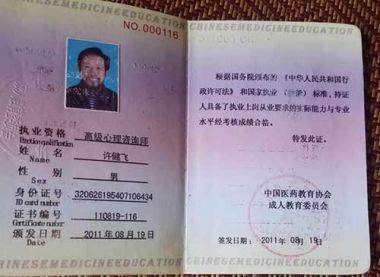 CHINESEMEDICINEEDUCATION
NO.000116
执业资格 高级心理咨询师
姓 名 许健飞
Name
性 别 男
Sex
身份证号 320626195407106434
ID card number
证书编号 110819-116
Certificate number
颁发日期 2011年08月19日
Date
CHINESEMEDICINEEDUCATION
根据国务院颁布的《中华人民共和国行
政许可法》和国家执业（ ）标准，持证
人具备了执业上岗从业要求的实际能力与专业
水平经考核成绩合格。
特发此证。
中国医药教育协会
成人教育委员会
签发日期：2011年08月19日
CHINESEMEDICINEEDUCATION